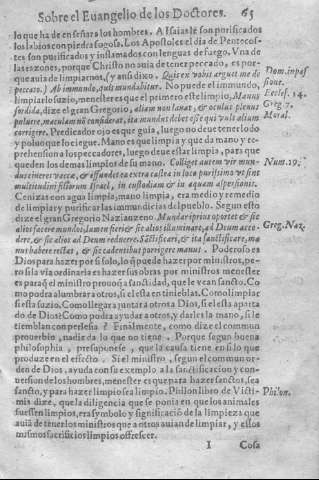 Sobre el Euangelio de los Doctores. 65
lo que ha de enseñar a los hombres. A Isaias le son purificados
los labios con piedra fogosa. Los Apostoles el dia de Pentecos-
tes son purificados y inflamados con lenguas de fuego. Vna de
las razones, porque Christo no auia de tener peccado, es por-
que auia de limpiarnos, (y ansi dixo. Quis ex vobis arguet me de
peccato.) Ab immundo, quis mundabitur. No puede el immundo,
limpiar lo suzio, menester es que el primero este limpio, Manus
sordida, dize el gran Gregorio, aliam non lauat, & oculus plenus
puluere, maculam non considerat, ita mundus debet esse qui vult alium
corrigere. Predicador ojo es que guia, luego no deue tener lodo
y poluo que lo ciegue. Mano es que limpia y que da mano y re-
prehension a los peccadores, luego deue estar limpia, para que
queden los demas limpios de su mano. Colliget autem vir mun-
dus cineres vaccæ, & effundet ea extra castra in loco purissimo vt sint
multitudini filiorum Israel, in custodiam & in aquam aspersionis.
Ceniza es con agua limpia, mano limpia, era medio y remedio
de limpiar y purificar las immundicias del pueblo. Segun esto
dize el gran Gregorio Nazianzeno. Mundari prius oportet & sic
alios facere mundos, lumen fieri & sic alios illuminare, ad Deum acce-
dere, & sic alios ad Deum reducere. Sãctificari, & ita sanctificare, ma
nus habere rectas, & sic cadentibus porrigere manus. Poderoso es
Dios para hazer por si solo, lo q̃ puede hazer por ministros, pe-
ro si la via ordinaria es hazer sus obras por ministros menester
es para q̃ el ministro prouoq̃ a sanctidad, que le vean sancto. Co
mo podra alumbrar a otros, si el esta en tinieblas. Como limpiar
si esta suzio. Como llegara y juntar a otros a Dios, si el esta aparta
do de Dios? Como podra ayudar a otros, y darles la mano, si le
tiemblan con perlesia? Finalmente, como dize el commun
prouerbio, nadie da lo que no tiene. Porque segun buena
philosophia, presupone, que la causa tiene en si lo que
produze en el effecto. Si el ministro, segun el commun or-
den de Dios, ayuda con su exemplo a la sanctificacion y con-
uersion de los hombres, menester es que para hazer sanctos, sea
sancto, y para hazer limpios sea limpio. Philon libro de Victi-
mis dize, que la diligencia que se ponia en que los animales
fuessen limpios, era symbolo y significació de la limpieza que
auiã de tener los ministros que a otros auian de limpiar, y essos
mismos sacrificios limpios offrescer.
I Cosa
Dom. in pas
sione.
Eccles. 14.
Greg. 7.
Moral.
Num. 19.
Greg. Naz.
Philon.